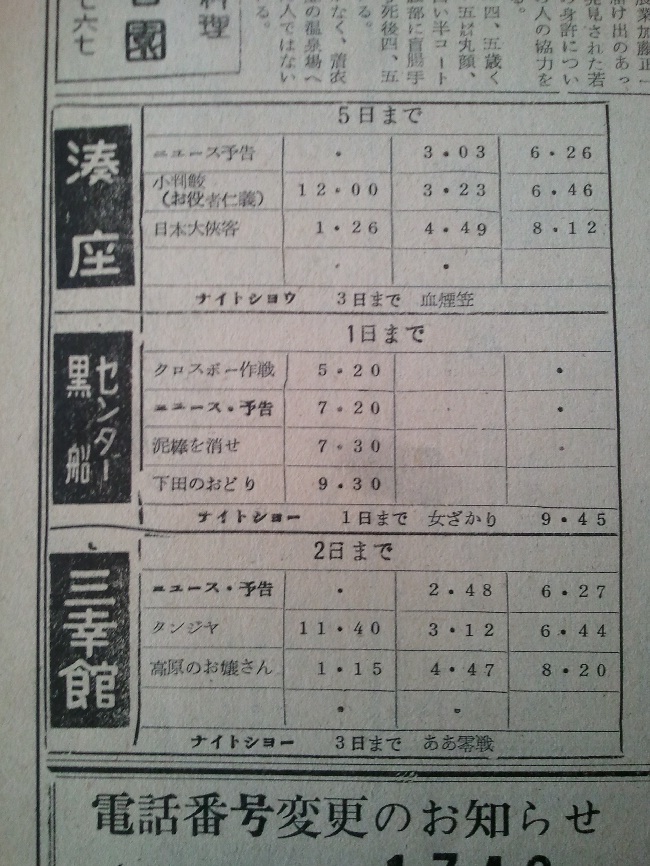 料理
園
七六七
農業加藤正一
届け出のあっ
発見された若
の身許につい
の人の協力を
る。
四、五歳く
丸顔、
半コート
腹部に盲腸手
死後四、五
る。
なく、着衣
の温泉場へ
人ではない
る。
湊座
5日まで
ニュース予告 ・ 3・03 6・26
小判鮫
(お役者仁義) 12・00 3・23 6・46
日本大侠客 1・26 4・49 8・12
・ ・
ナイトショウ 3日まで 血煙笠
センター
黒船
1日まで
クロスボー作戦 5・20 ・
ニュース・予告 7・20 ・ ・
泥棒を消せ 7・30 ・
下田のおどり 9・30
ナイトショー 1日まで 女ざかり 9・45
三幸館
2日まで
ニュース・予告 ・ 2・48 6・27
タンジヤ 11・40 3・12 6・44
高原のお嬢さん 1・15 4・47 8・20
・ ・
ナイトショー 3日まで ああ零戦
電話番号変更のお知らせ